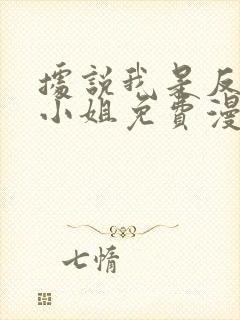 據說我是反
小姐免費漫
七情